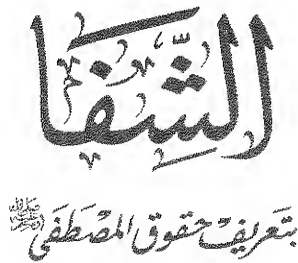 الشِّفَا
بتَعريفِ حُقوق المُصْطَفَى ﷺ